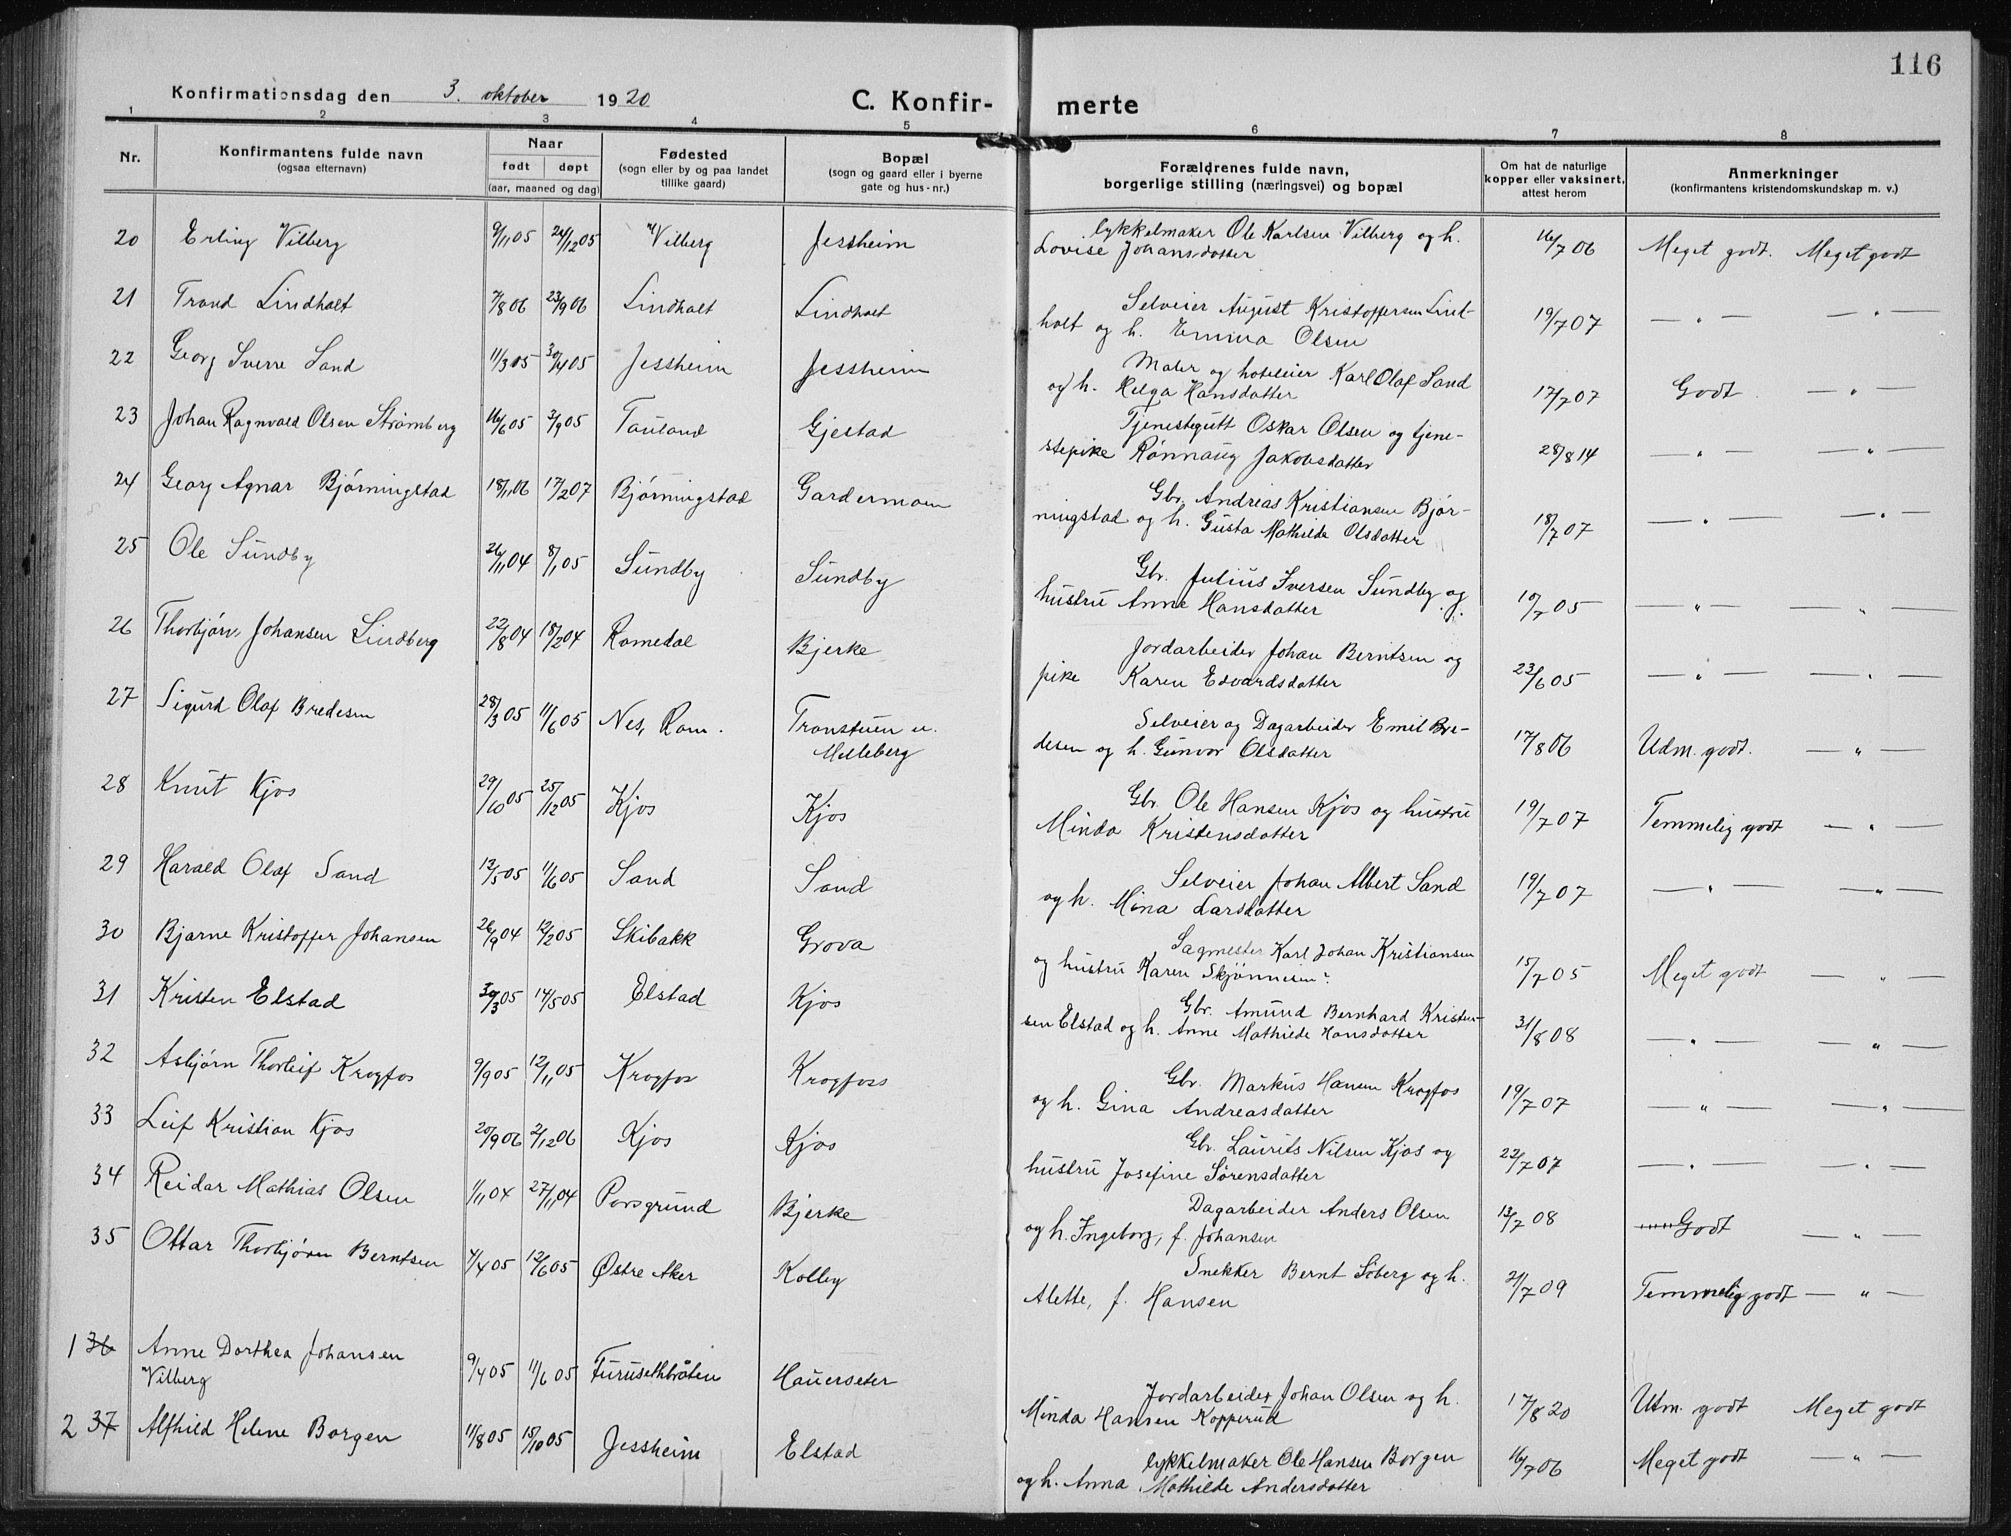 116
Konfirmationsdag den 3. oktober 1920
C. Konfir-merte
1 2 3 4 5 6 7 8
Nr.
Konfirmantens fulde navn
(ogsaa efternavn)
Naar
født døpt
(aar, maaned og dag)
Fødested
(sogn eller by og paa landet
tillike gaard)
Bopæl
(sogn og gaard eller i byerne
gate og hus-nr.)
Forældrenes fulde navn,
borgerlige stilling (næringsvei) og bopæl
Om hat de naturlige
kopper eller vaksinert,
attest herom
Anmerkninger
(konfirmantens kristendomskundskap m. v.)
20 Erling Vilberg 9/11 05 24/12 05 Vilberg Jessheim
Cykkelmaker Ole Karlsen Vilberg og h.
Lovise Johansdatter 16/7 06 Meget godt. Meget godt
21 Trond Lindholt 7/8 06 23/9 06 Lindholt Lindholt
Selveier August Kristoffersen Lind-
holt og h. Emma Olsen 19/7 07 — " — — " —
22 Georg Sverre Sand 11/3 05 30/4 05 Jessheim Jessheim
Maler og hoteleier Karl Olaf Sand
og h. Helga Hansdatter 17/7 07 Godt — " —
23 Johan Ragnvald Olsen Strømberg 16/6 05 3/9 05 Tauland Gjestad
Tjenestegutt Oskar Olsen og tjene-
stepike Rønnaug Jakobsdatter 28/8 14 — " — — " —
24 Georg Agnar Bjørningstad 18/11 06 17/2 07 Bjørningstad Gardermoen
Gbr. Andreas Kristiansen Bjør-
ningstad og h. Gusta Mathilde Olsdatter 18/7 07 — " — — " —
25 Ole Sundby 26/11 04 8/1 05 Sundby Sundby
Gbr. Julius Iversen Sundby og
hustru Anne Hansdatter 10/7 05 — " — — " —
26 Thorbjørn Johansen Lindberg 22/8 04 18/2 04 Romedal Bjerke
Jordarbeider Johan Berntsen og
pike Karen Edvardsdatter 23/6 05 — " — — " —
27 Sigurd Olaf Bredesen 28/3 05 11/6 05 Nes, Rom. Tronstuen u.
Melleberg
Selveier og Dagarbeider Emil Bre-
desen og h. Gunvor Olsdatter 17/8 06 Udm. godt. — " —
28 Knut Kjos 29/10 05 25/12 05 Kjos Kjos
Gbr. Ole Hansen Kjos og hustru
Minda Kristensdatter 19/7 07 Temmelig godt — " —
29 Harald Olaf Sand 13/5 05 11/6 05 Sand Sand
Selveier Johan Albert Sand
og h. Mina Larsdatter 19/7 07 — " — — " —
30 Bjarne Kristoffer Johansen 26/9 04 12/2 05 Skibakk Grova
Sagmester Karl Johan Kristiansen
og hustru Karen Skjønnesen? 15/7 05 Meget godt — " —
31 Kristen Elstad 30/3 05 14/5 05 Elstad Kjos
Gbr. Amund Bernhard Kristen-
sen Elstad og h. Anne Mathilde Hansdatter 31/8 08 — " — — " —
32 Asbjørn Thorleif Krogfos 9/9 05 12/11 05 Krogfos Krogfoss
Gbr. Markus Hansen Krogfos
og h. Gina Andreasdatter 19/7 07 — " — — " —
33 Leif Kristian Kjos 20/9 06 2/12 06 Kjos Kjos
Gbr. Laurits Nilsen Kjos og
hustru Josefine Sørensdatter 22/7 07 — " — — " —
34 Reidar Mathias Olsen 1/11 04 27/11 04 Porsgrund Bjerke
Dagarbeider Anders Olsen
og h. Ingeborg, f. Johansen 13/7 08 Godt — " —
35 Ottar Thorbjørn Berntsen 7/4 05 12/6 05 Østre Aker Kolby
Snekker Bernt Søberg og h.
Alette, f. Hansen 21/7 09 Temmelig godt — " —
1 36 Anne Dorthea Johansen
Vilberg 9/4 05 11/6 05 Furusethbråten Hauerseter
Jordarbeider Johan Olsen og h.
Minda Hansen Kopperud 17/8 20 Utm. godt Meget godt
2 37 Alfhild Helene Borgen 11/8 05 15/10 05 Jessheim Elstad
Cykkelmaker Ole Hansen Borgen
og h. Anna Mathilde Andersdatter 16/7 06 Meget godt — " —